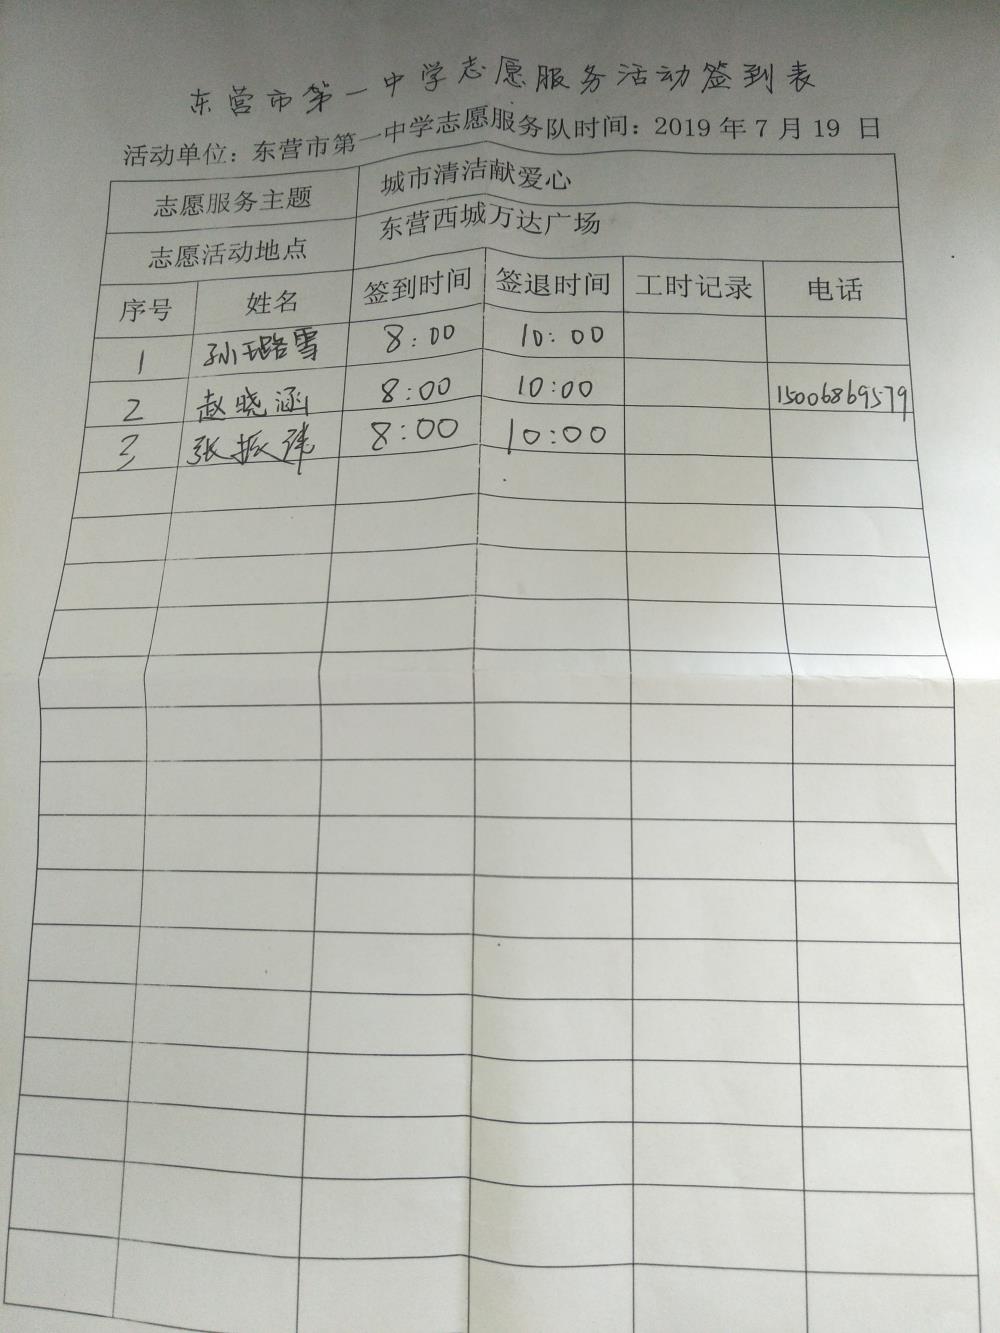 东营市第一中学志愿服务活动签到表
活动单位：东营市第一中学志愿服务队时间：2019 年 7 月 19 日
志愿服务主题 城市清洁献爱心
志愿活动地点 东营西城万达广场
序号 姓名 签到时间 签退时间 工时记录 电话
1 孙璐雪 8:00 10:00
2 赵晓涵 8:00 10:00 15006869579
3 张振玮 8:00 10:00